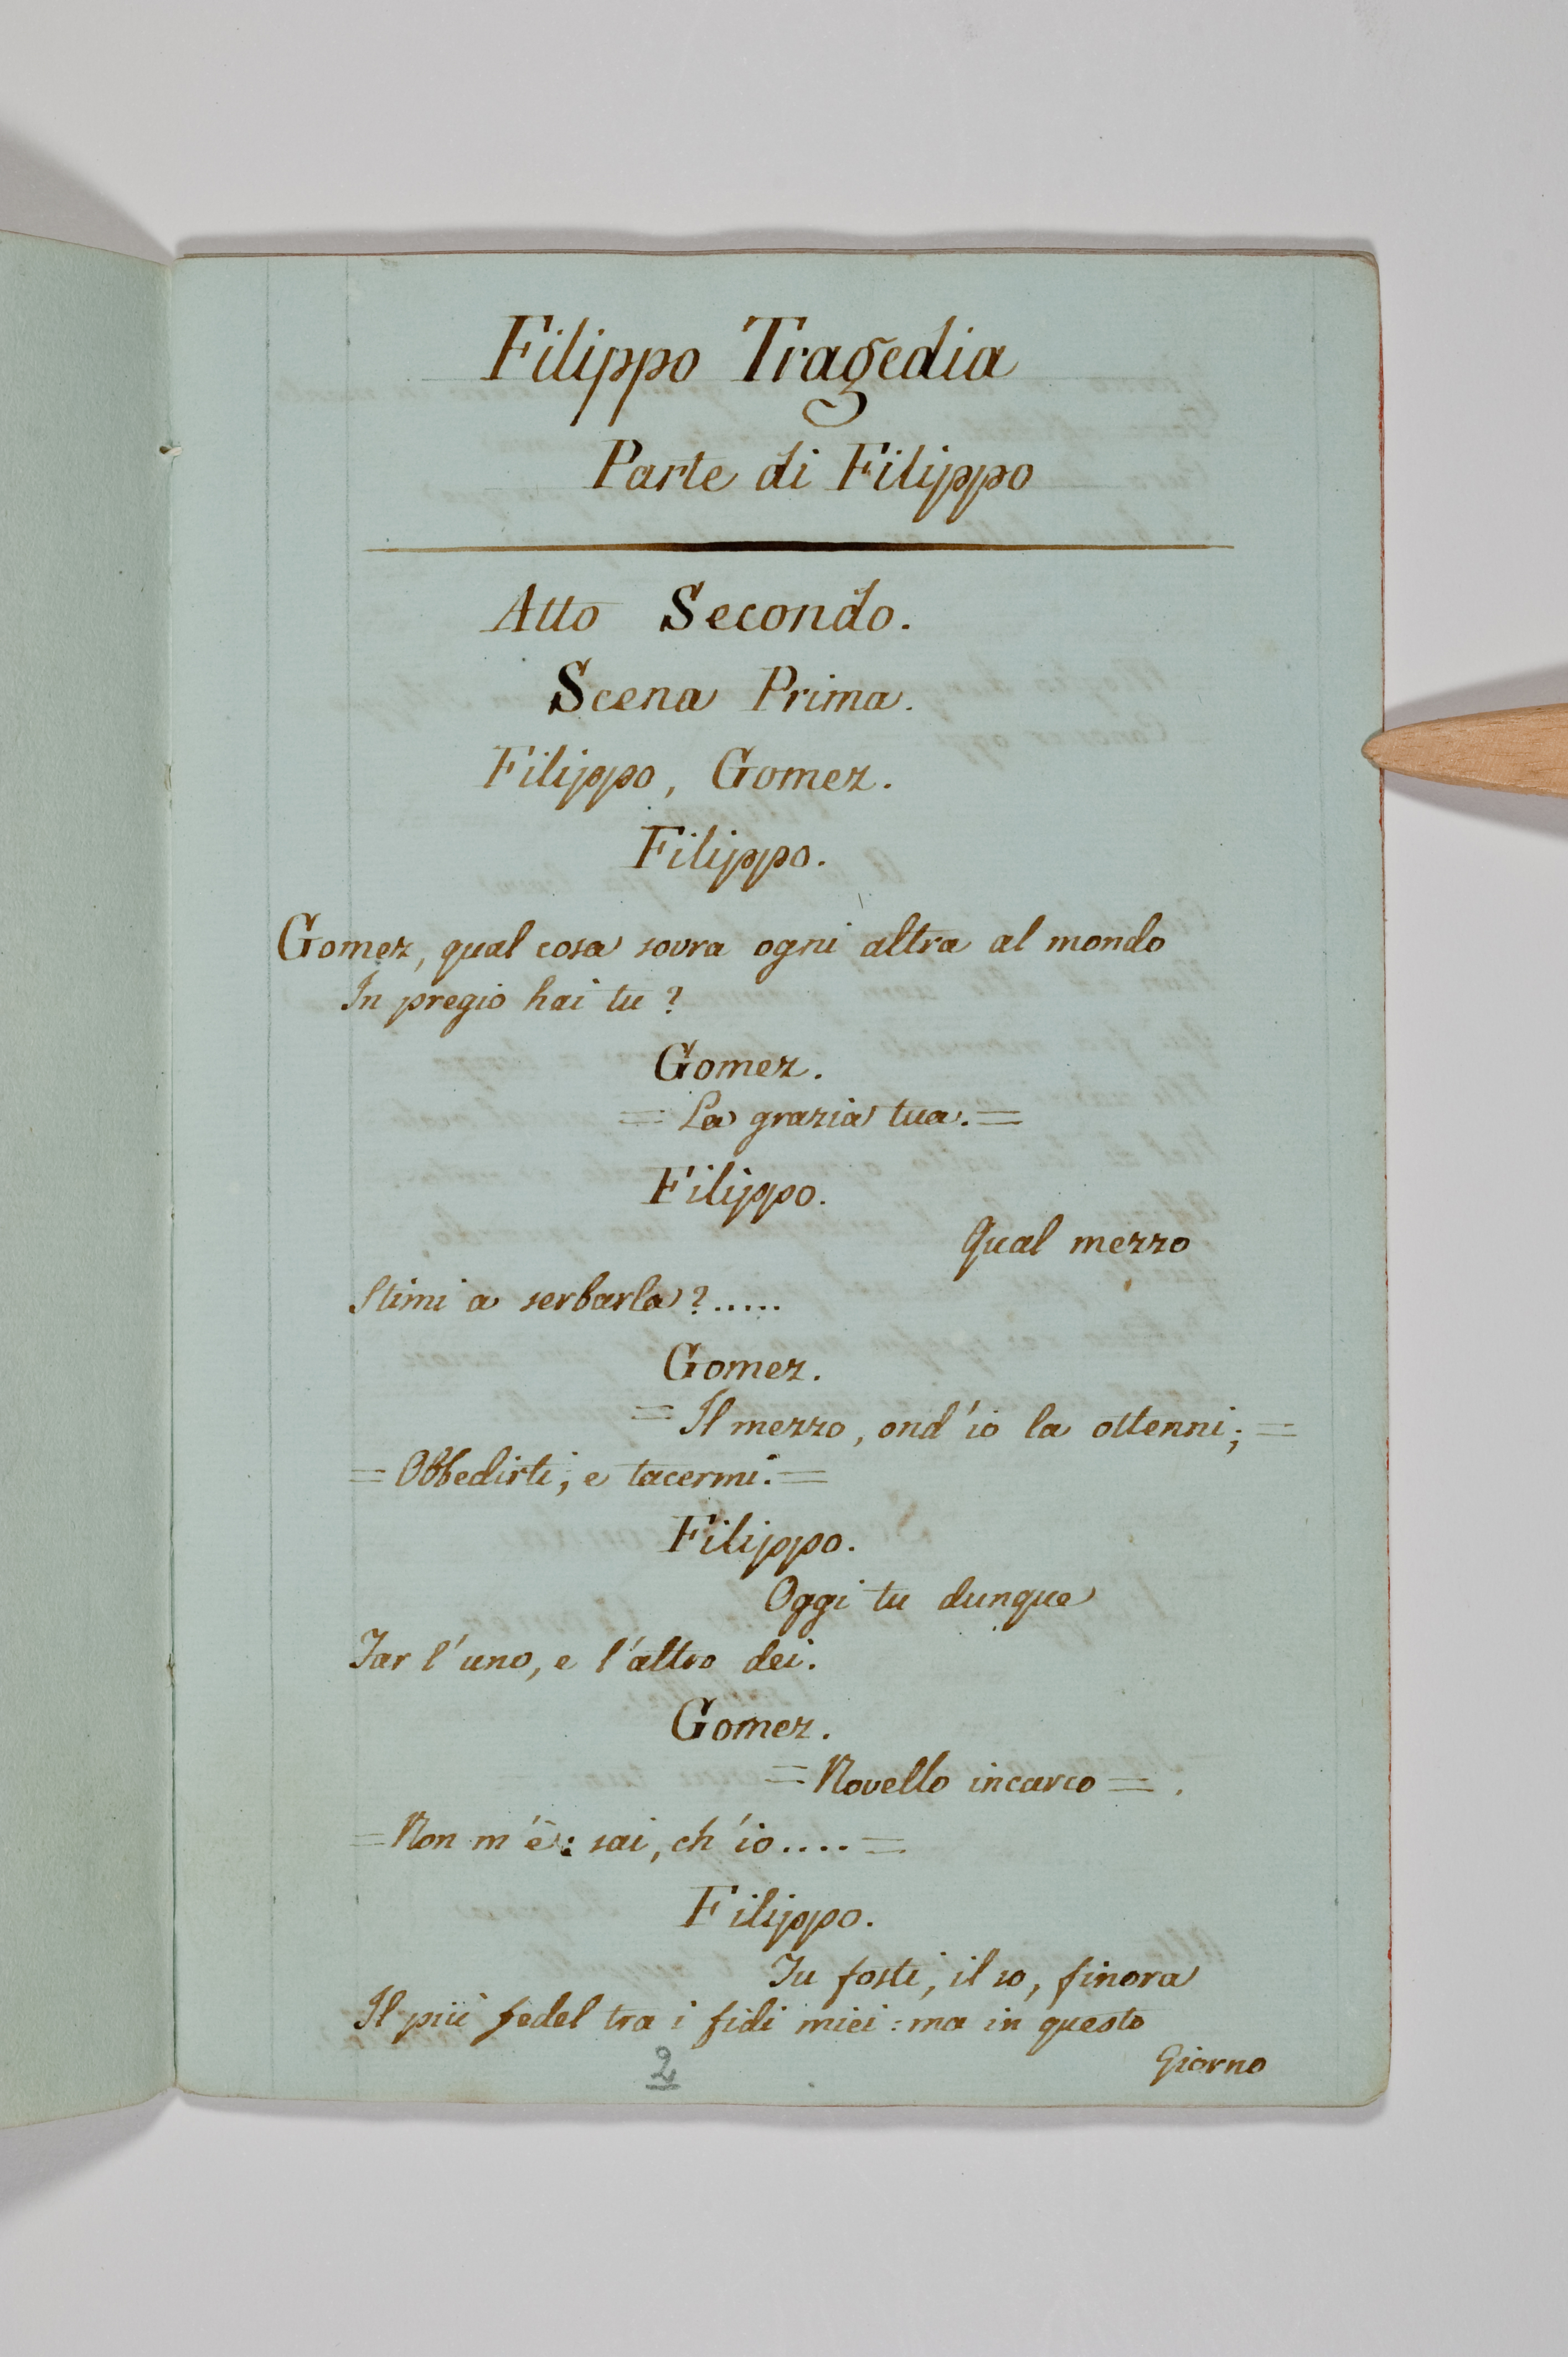 Filippo Tragedia
Parte di Filippo
Atto Secondo.
Scena Prima.
Filippo, Gomez.
Filippo.
Gomez, qual cosa sovra ogni altra al mondo
In pregio hai tu?
Gomez.
= La grazia tua. =
Filippo.
Qual mezzo
Stimi a serbarla?.....
Gomez.
= Il mezzo, ond'io la ottenni; =
= Obbedirti, e tacermi. =
Filippo.
Oggi tu dunque
Far l'uno, e l'altro dei.
Gomez.
= Novello incarco = .
= Non m'è: sai, ch'io.... =
Filippo.
Tu fosti, il so, finora
Il più fedel tra i fidi miei: ma in questo
Giorno
2